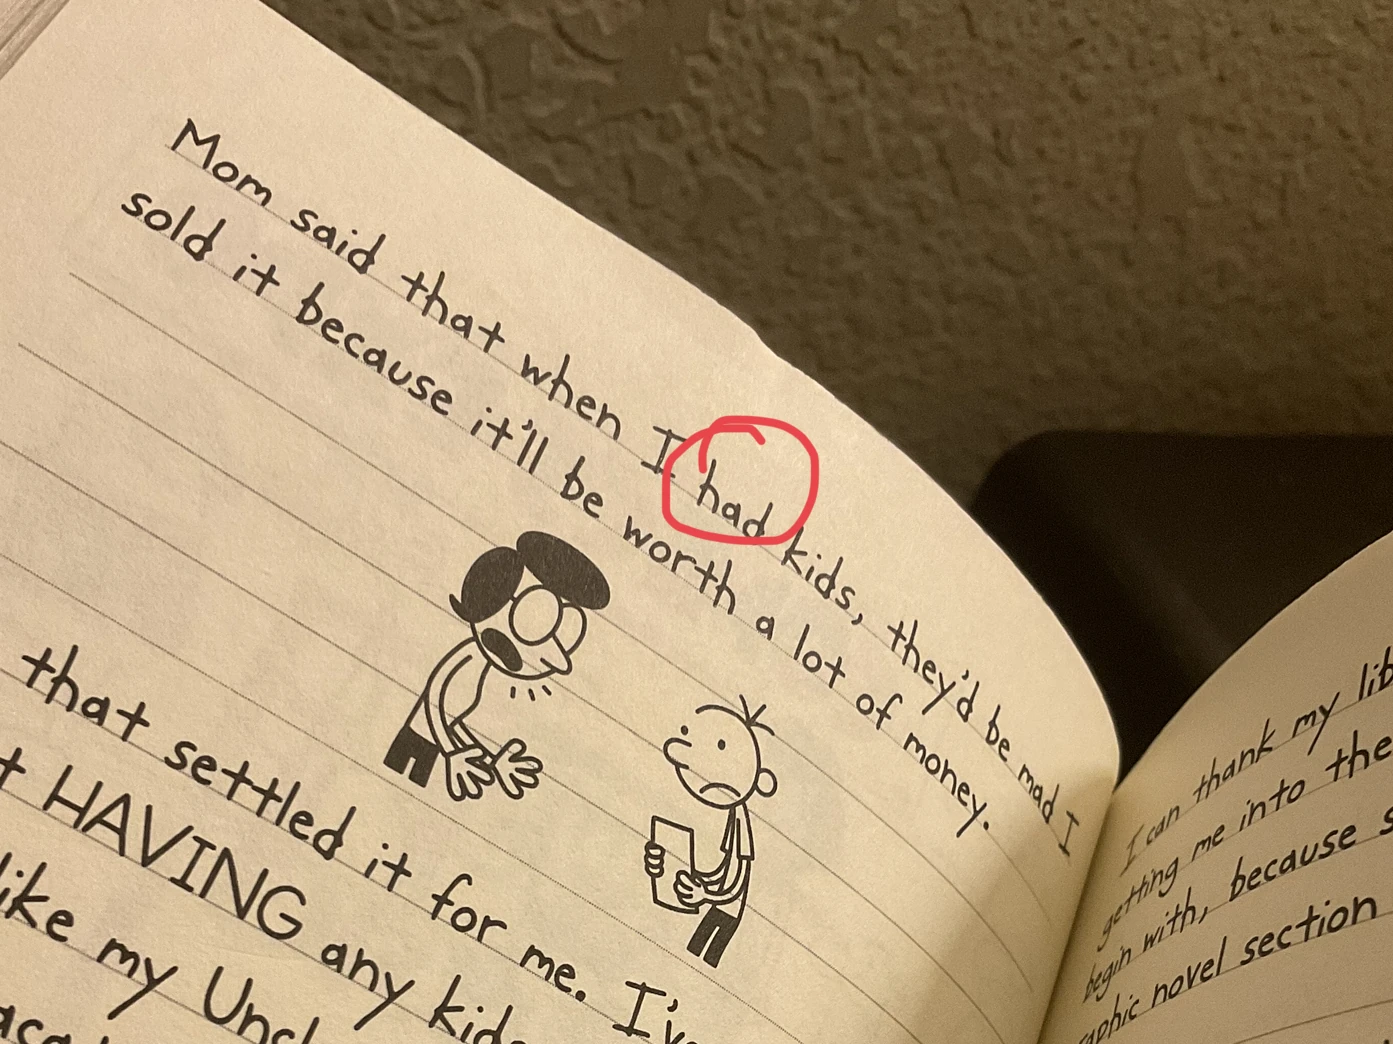 Mom said that when I had kids, they'd be mad I
sold it because it'll be worth a lot of money.
that settled it for me. I've
HAVING any kids
like my
I can thank my
getting me into the
begin with, because
novel section